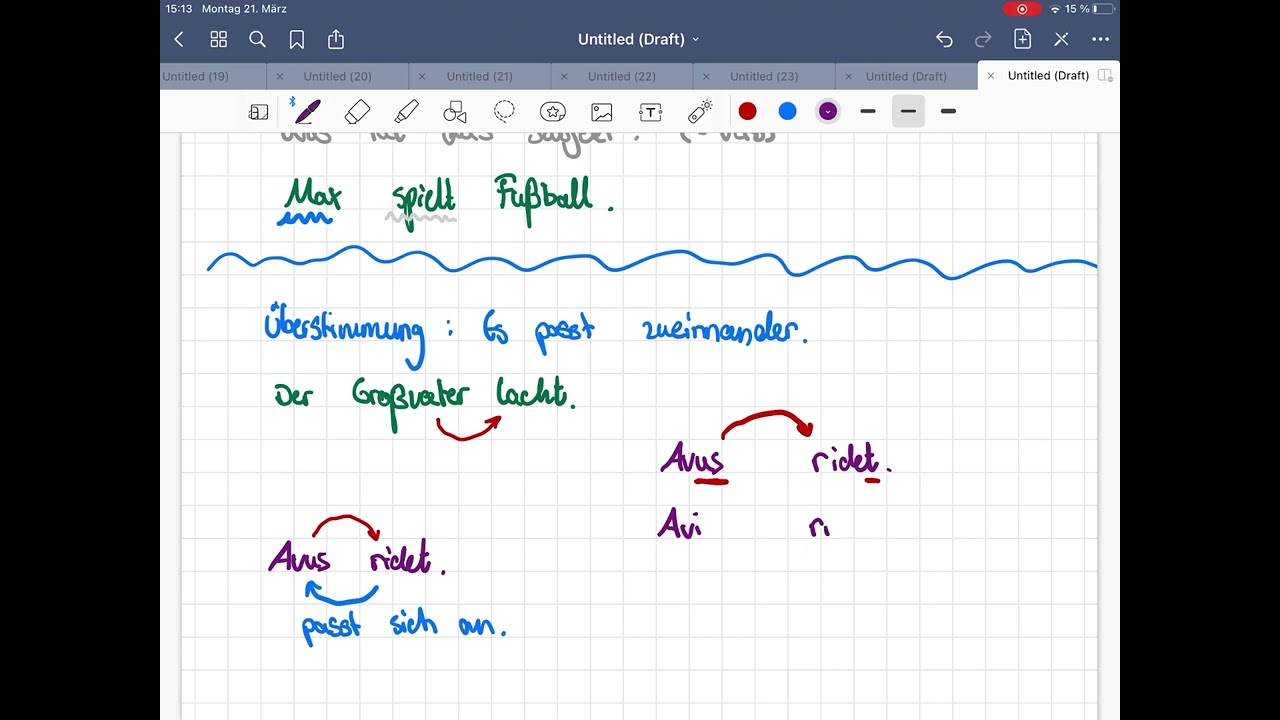 15:13 Montag 21. März 15 %
Untitled (Draft)
Untitled (19) Untitled (20) Untitled (21) Untitled (22) Untitled (23) Untitled (Draft) Untitled (Draft)
Max spielt Fußball.
Überstimmung: Es passt zueinnander.
Der Großvater lacht.
Avus ridet.
Avi ri
Avus ridet.
passt sich an.